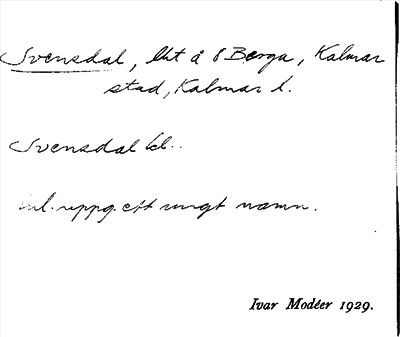 Svensdal, lht å Berga, Kalmar
stad, Kalmar l.
Svensdal
enl. uppg. ett ungt namn.
Ivar Modéer 1929.